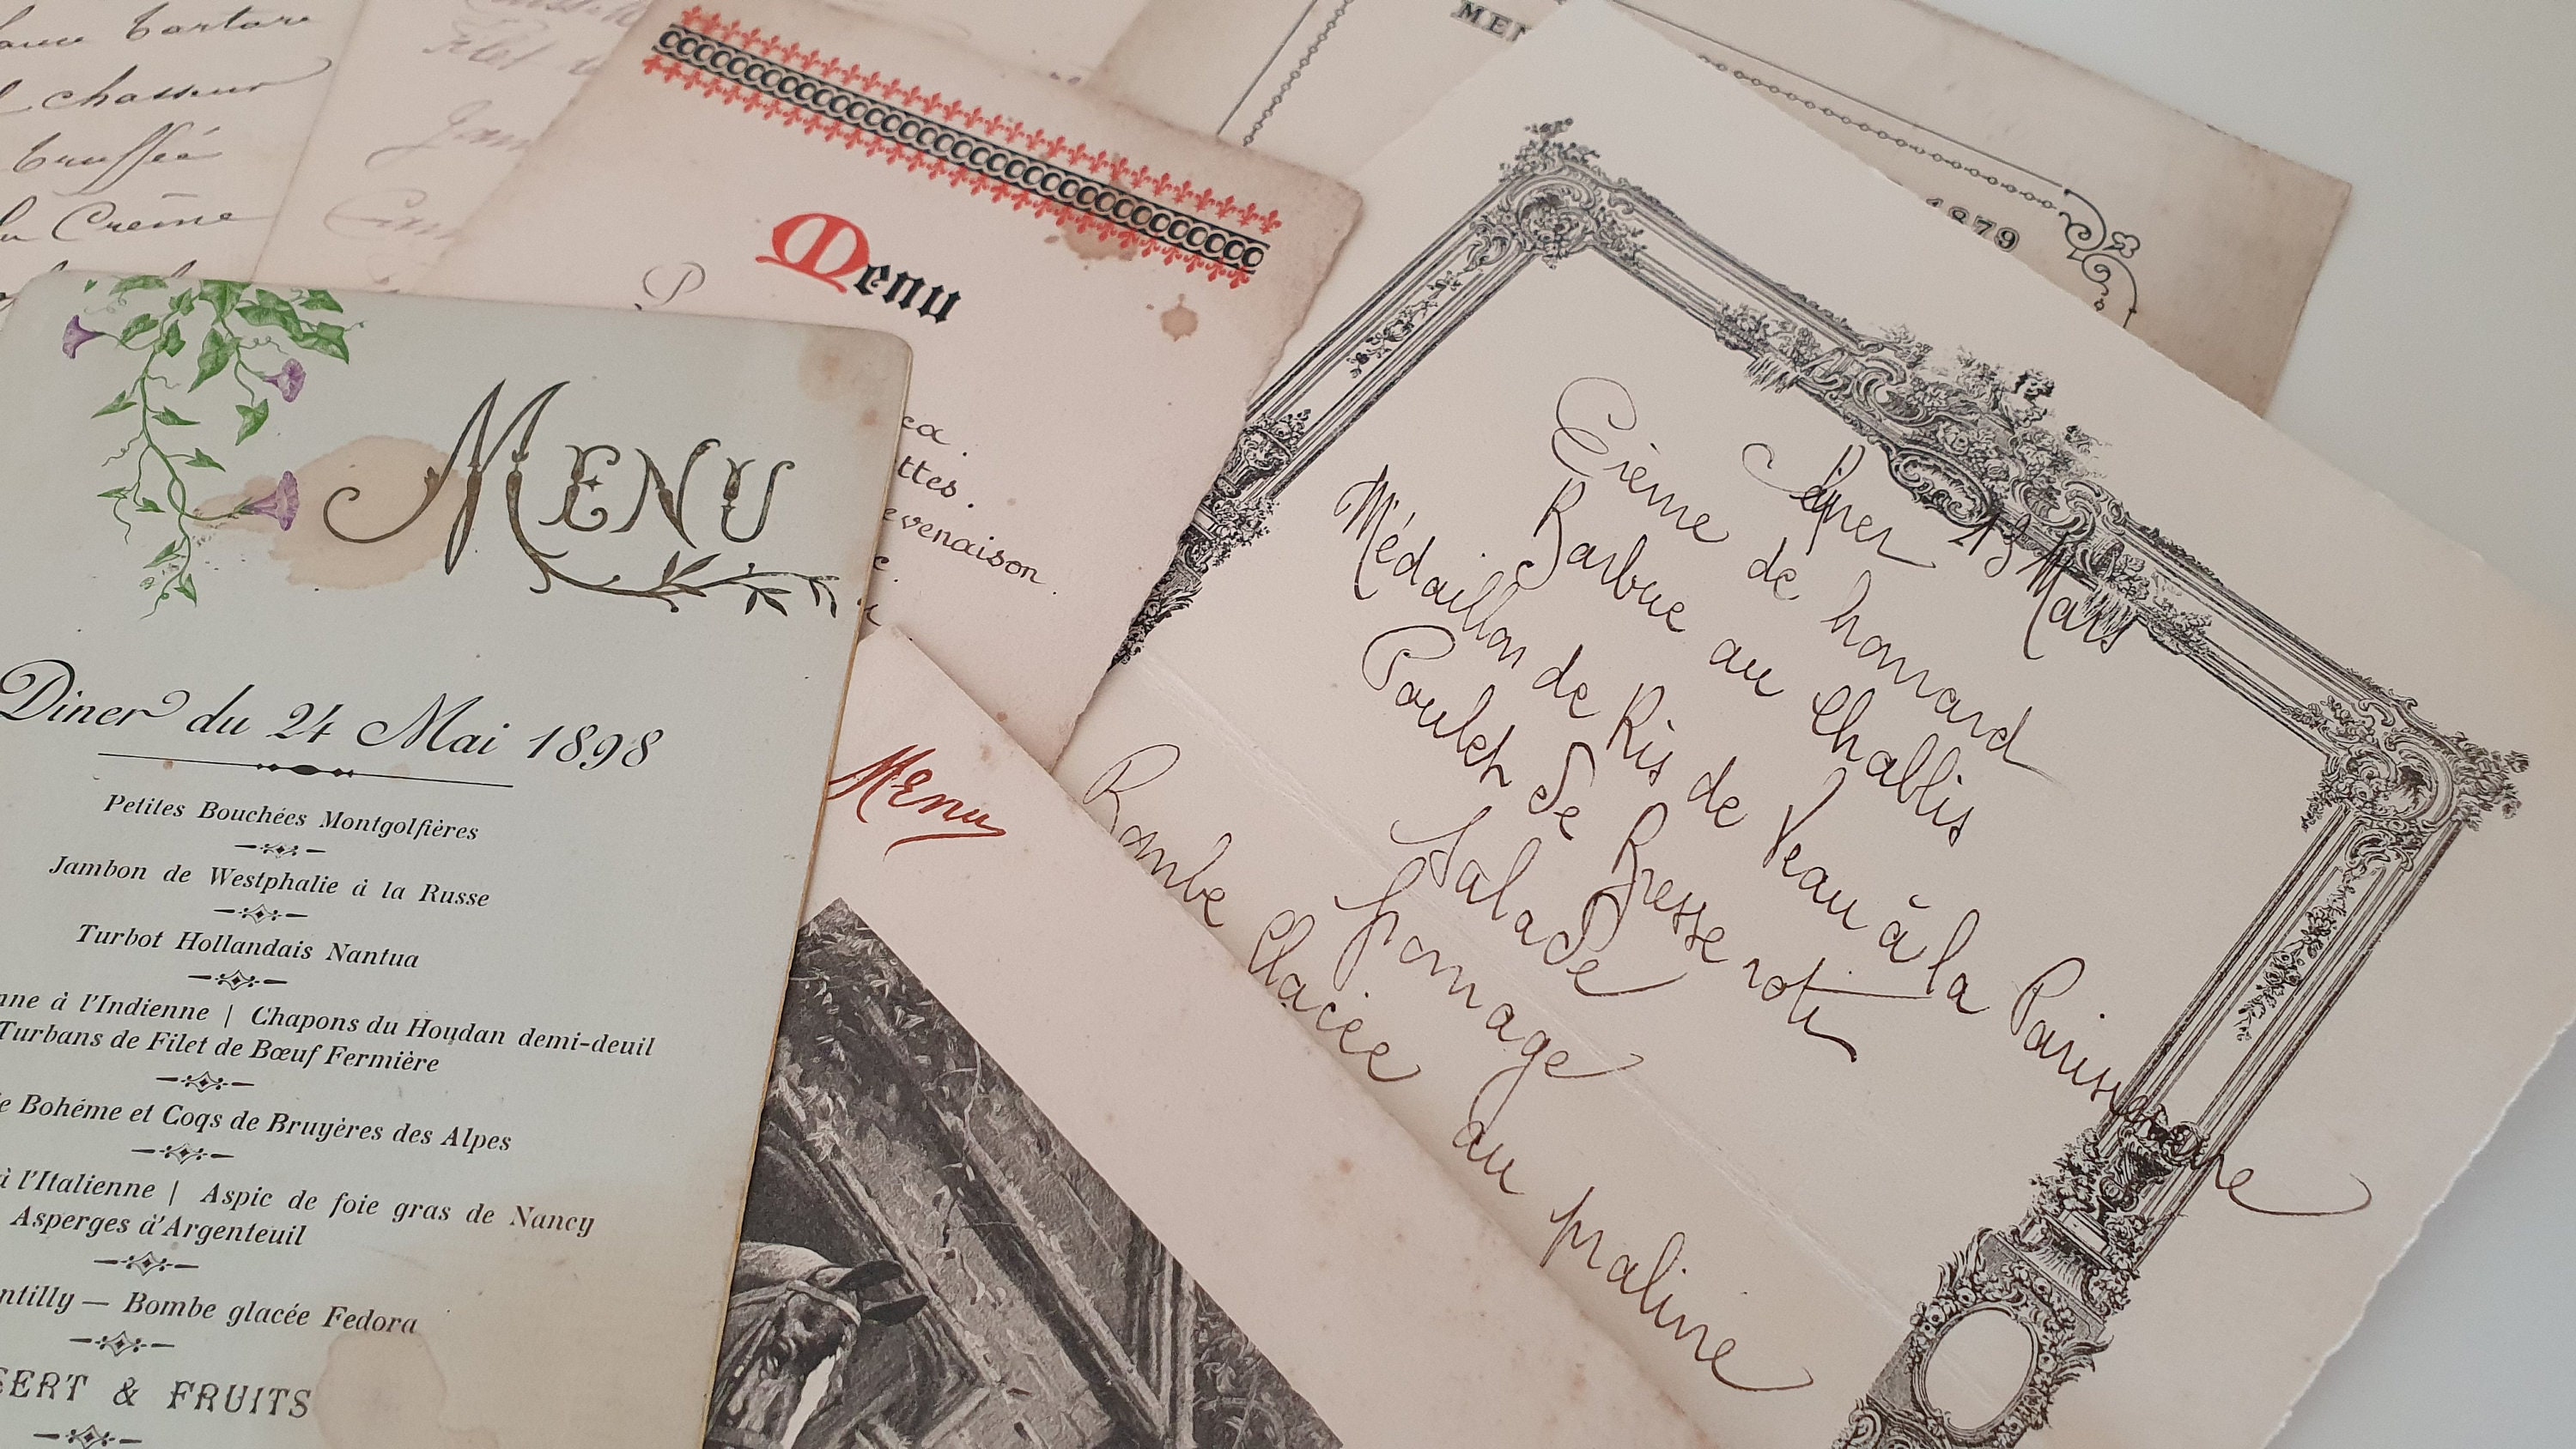 tartare
chasseur
truffée
la Crème
Filet
Menu
MEN
1879
evenaison.
MENU
Dîner du 24 Mai 1898
Petites Bouchées Montgolfières
Jambon de Westphalie à la Russe
Turbot Hollandais Nantua
à l'Indienne | Chapons du Houdan demi-deuil
Turbans de Filet de Bœuf Fermière
Bohéme et Coqs de Bruyères des Alpes
à l'Italienne | Aspic de foie gras de Nancy
Asperges d'Argenteuil
ntilly — Bombe glacée Fedora
SERT & FRUITS
Menu
13 Mars
Crème de homard
Barbue au Chablis
Médaillon de Ris de Veau à la Parisienne
Poulet de Bresse roti
Salade
fromage
Bombe Glacée au praliné